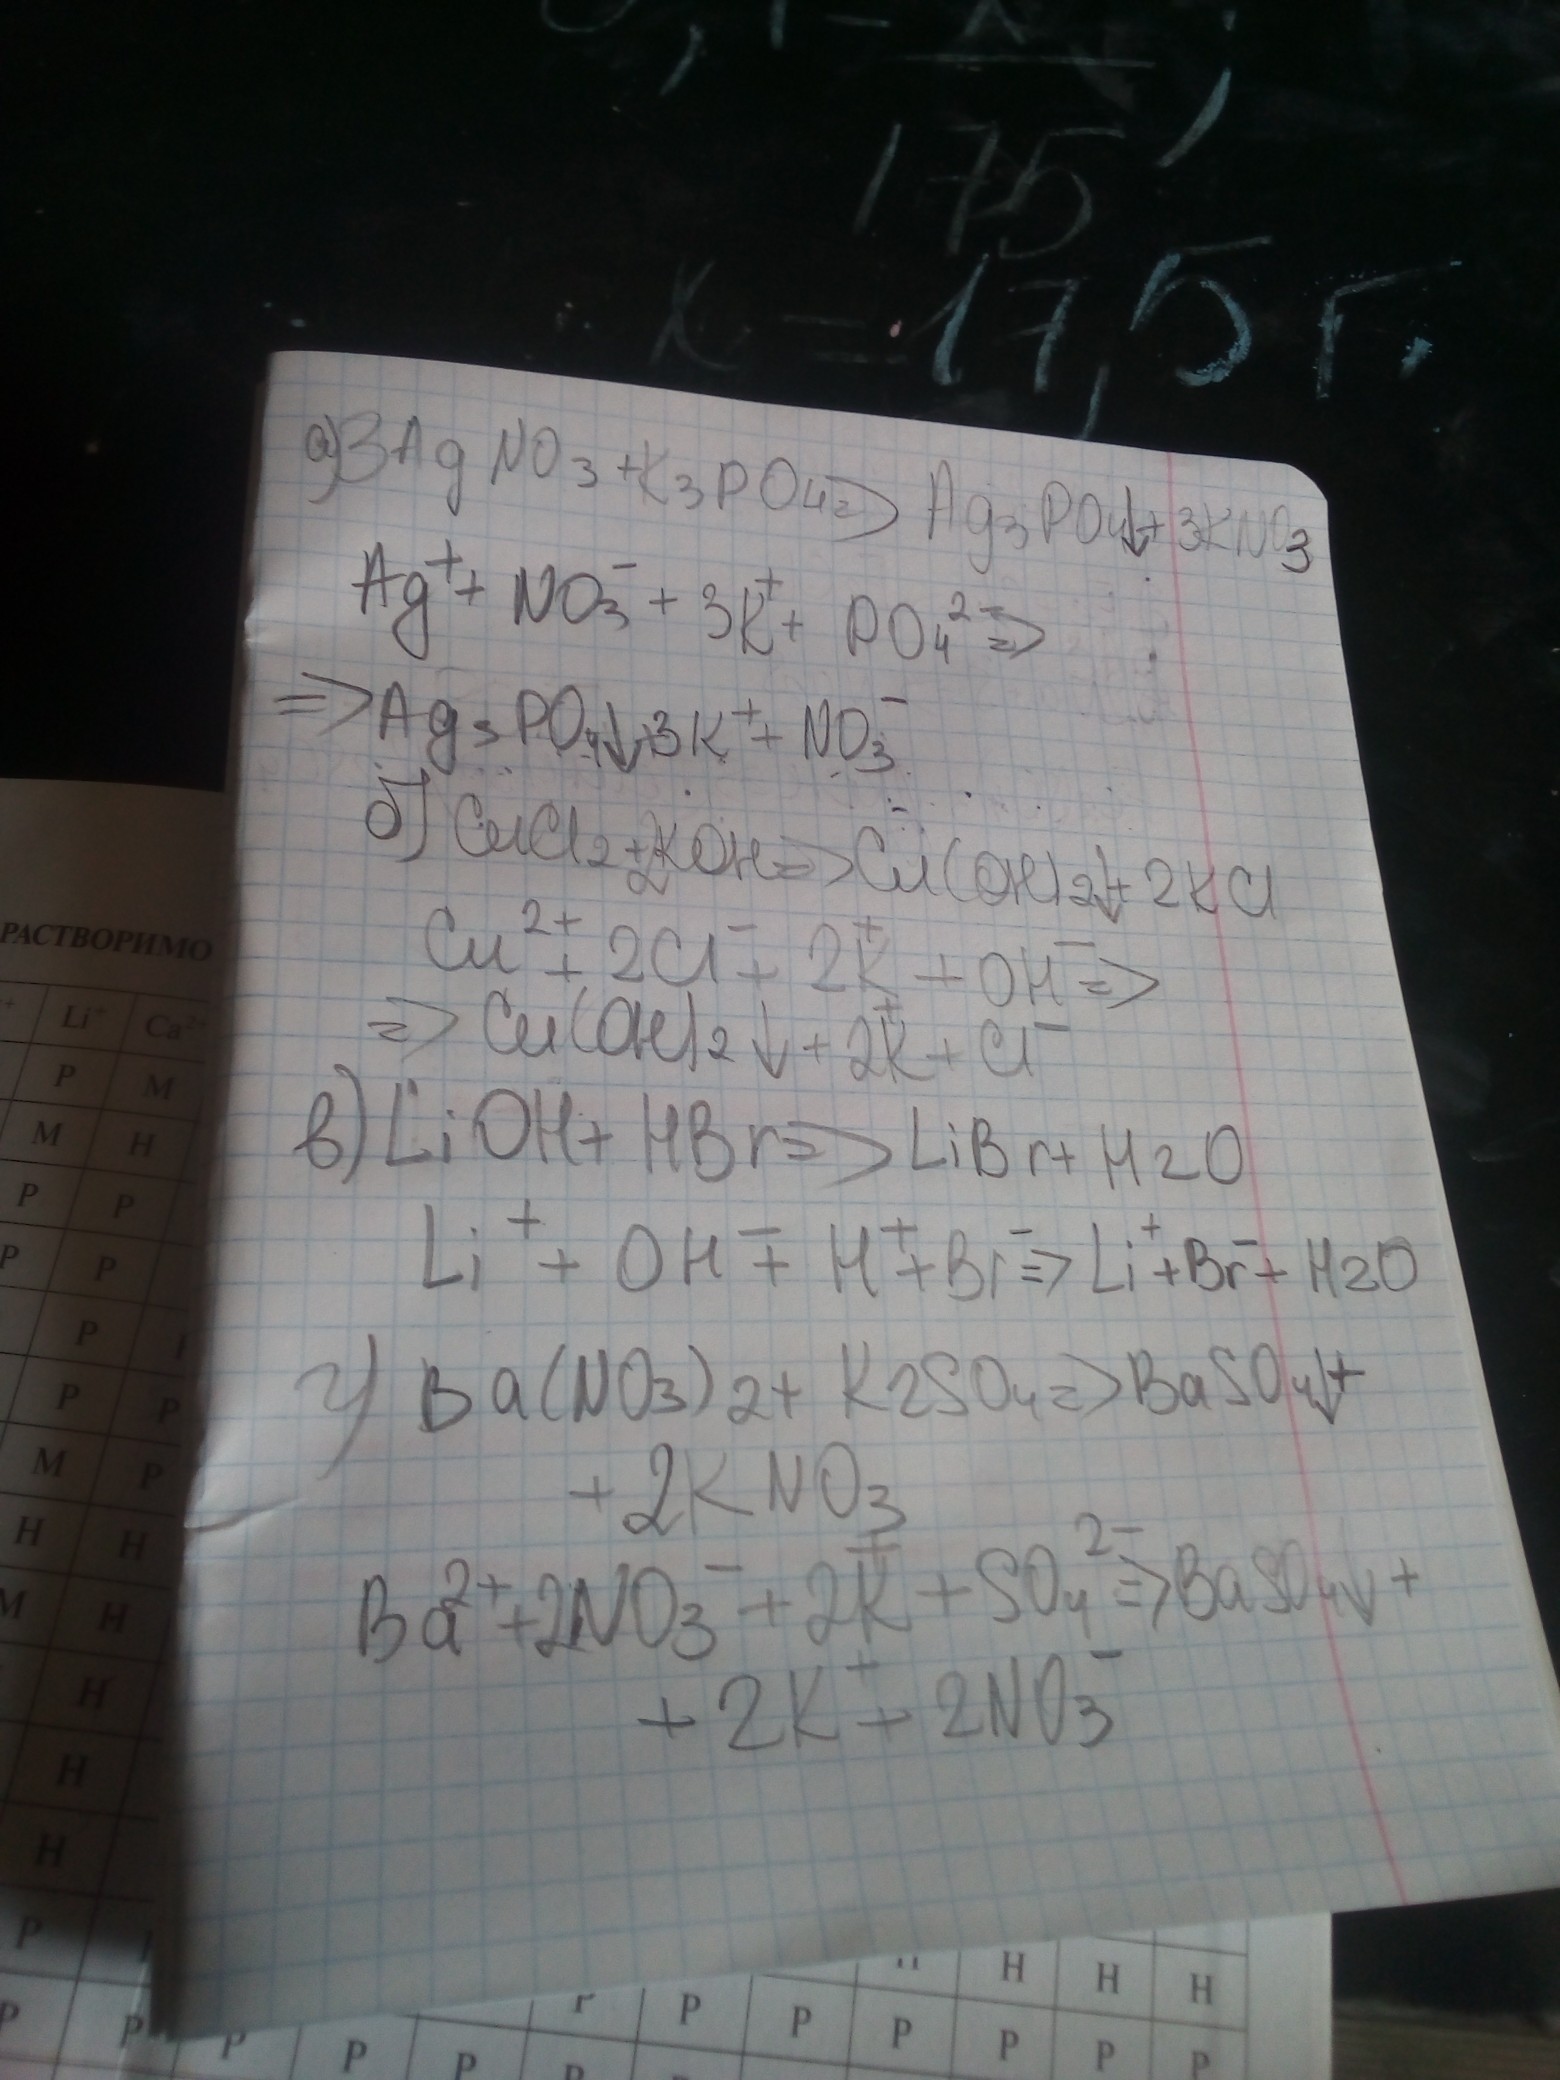 175
x = 17,5 г.
а) 3AgNO3 + K3PO4 => Ag3PO4↓ + 3KNO3
Ag⁺ + NO3⁻ + 3K⁺ + PO4²⁻ =>
=> Ag3PO4↓ + 3K⁺ + NO3⁻
б) CuCl2 + 2KOH => Cu(OH)2↓ + 2KCl
Cu²⁺ + 2Cl⁻ + 2K⁺ + OH⁻ =>
=> Cu(OH)2↓ + 2K⁺ + Cl⁻
в) LiOH + HBr => LiBr + H2O
Li⁺ + OH⁻ + H⁺ + Br⁻ => Li⁺ + Br⁻ + H2O
г) Ba(NO3)2 + K2SO4 => BaSO4↓ +
+ 2KNO3
Ba²⁺ + 2NO3⁻ + 2K⁺ + SO4²⁻ => BaSO4↓ +
+ 2K⁺ + 2NO3⁻
РАСТВОРИМО
Li⁺ Ca²⁺
Р М
М Н
Р Р
Р Р
Р
Р Р
М Р
Н Н
М Н
Н
Н
Н
Р
Н Н Н
Р Р Р Р Р Р
Р Р Р Р